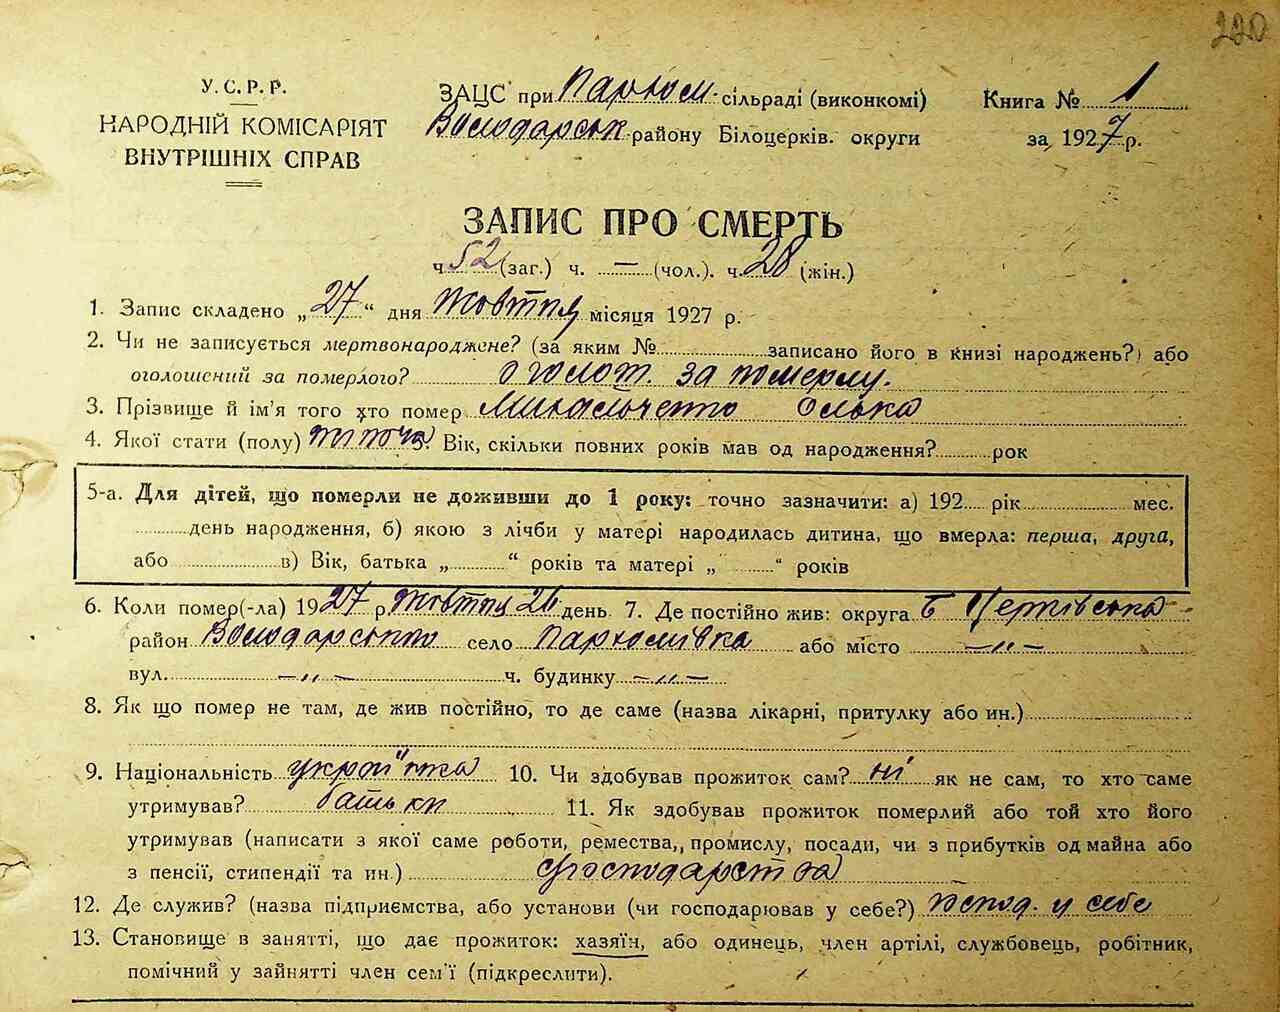 220
У.С.Р.Р.
НАРОДНІЙ КОМІСАРІЯТ
ВНУТРІШНІХ СПРАВ
ЗАЦС при Пархом. сільраді (виконкомі)
Володарськ району Білоцерків. округи
Книга № 1
за 1927 р.
ЗАПИС ПРО СМЕРТЬ
ч. 52 (заг.) ч. — (чол.). ч. 28 (жін.)
1. Запис складено „27“ дня жовтня місяця 1927 р.
2. Чи не записується мертвонароджене? (за яким № записано його в книзі народжень?) або
оголошений за померлого? оголош. за померлу.
3. Прізвище й ім'я того хто помер Михальченко Олька
4. Якої стати (полу) жіноча Вік, скільки повних років мав од народження? рок
5-а. Для дітей, що померли не доживши до 1 року: точно зазначити: а) 192 рік мес.
день народження, б) якою з лічби у матері народилась дитина, що вмерла: перша, друга,
або в) Вік, батька „ “ років та матері „ “ років
6. Коли помер(-ла) 1927 р. жовтня 26 день 7. Де постійно жив: округа Б Церківська
район Володарського село Пархомівка або місто —"—
вул. —"— ч. будинку —"—
8. Як що помер не там, де жив постійно, то де саме (назва лікарні, притулку або ин.)
9. Національність україїнка 10. Чи здобував прожиток сам? ні як не сам, то хто саме
утримував? батьки 11. Як здобував прожиток померлий або той хто його
утримував (написати з якої саме роботи, ремества,, промислу, посади, чи з прибутків од майна або
з пенсії, стипендії та ин.) господарства
12. Де служив? (назва підприємства, або установи (чи господарював у себе?) господ. у себе
13. Становище в занятті, що дає прожиток: хазяїн, або одинець, член артілі, службовець, робітник,
помічний у зайнятті член сем'ї (підкреслити).